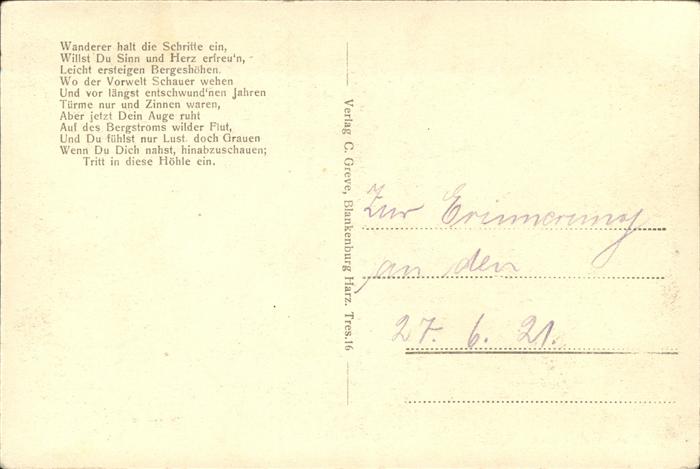 Wanderer halt die Schritte ein,
Willst Du Sinn und Herz erfreu'n,
Leicht ersteigen Bergeshöhen.
Wo der Vorwelt Schauer wehen
Und vor längst entschwund'nen Jahren
Türme nur und Zinnen waren,
Aber jetzt Dein Auge ruht
Auf des Bergstroms wilder Flut,
Und Du fühlst nur Lust doch Grauen
Wenn Du Dich nahst, hinabzuschauen;
Tritt in diese Höhle ein.
Verlag C. Greve, Blankenburg Harz. Tres.16
Zur Erinnerung
an den
27. 6. 21.